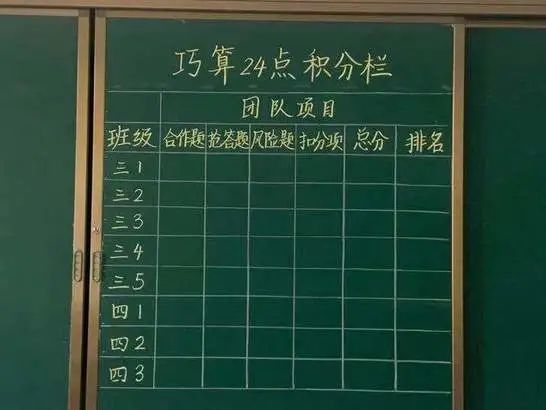 巧算24点积分栏
团队项目
班级 合作题 抢答题 风险题 扣分项 总分 排名
三1
三2
三3
三4
三5
四1
四2
四3